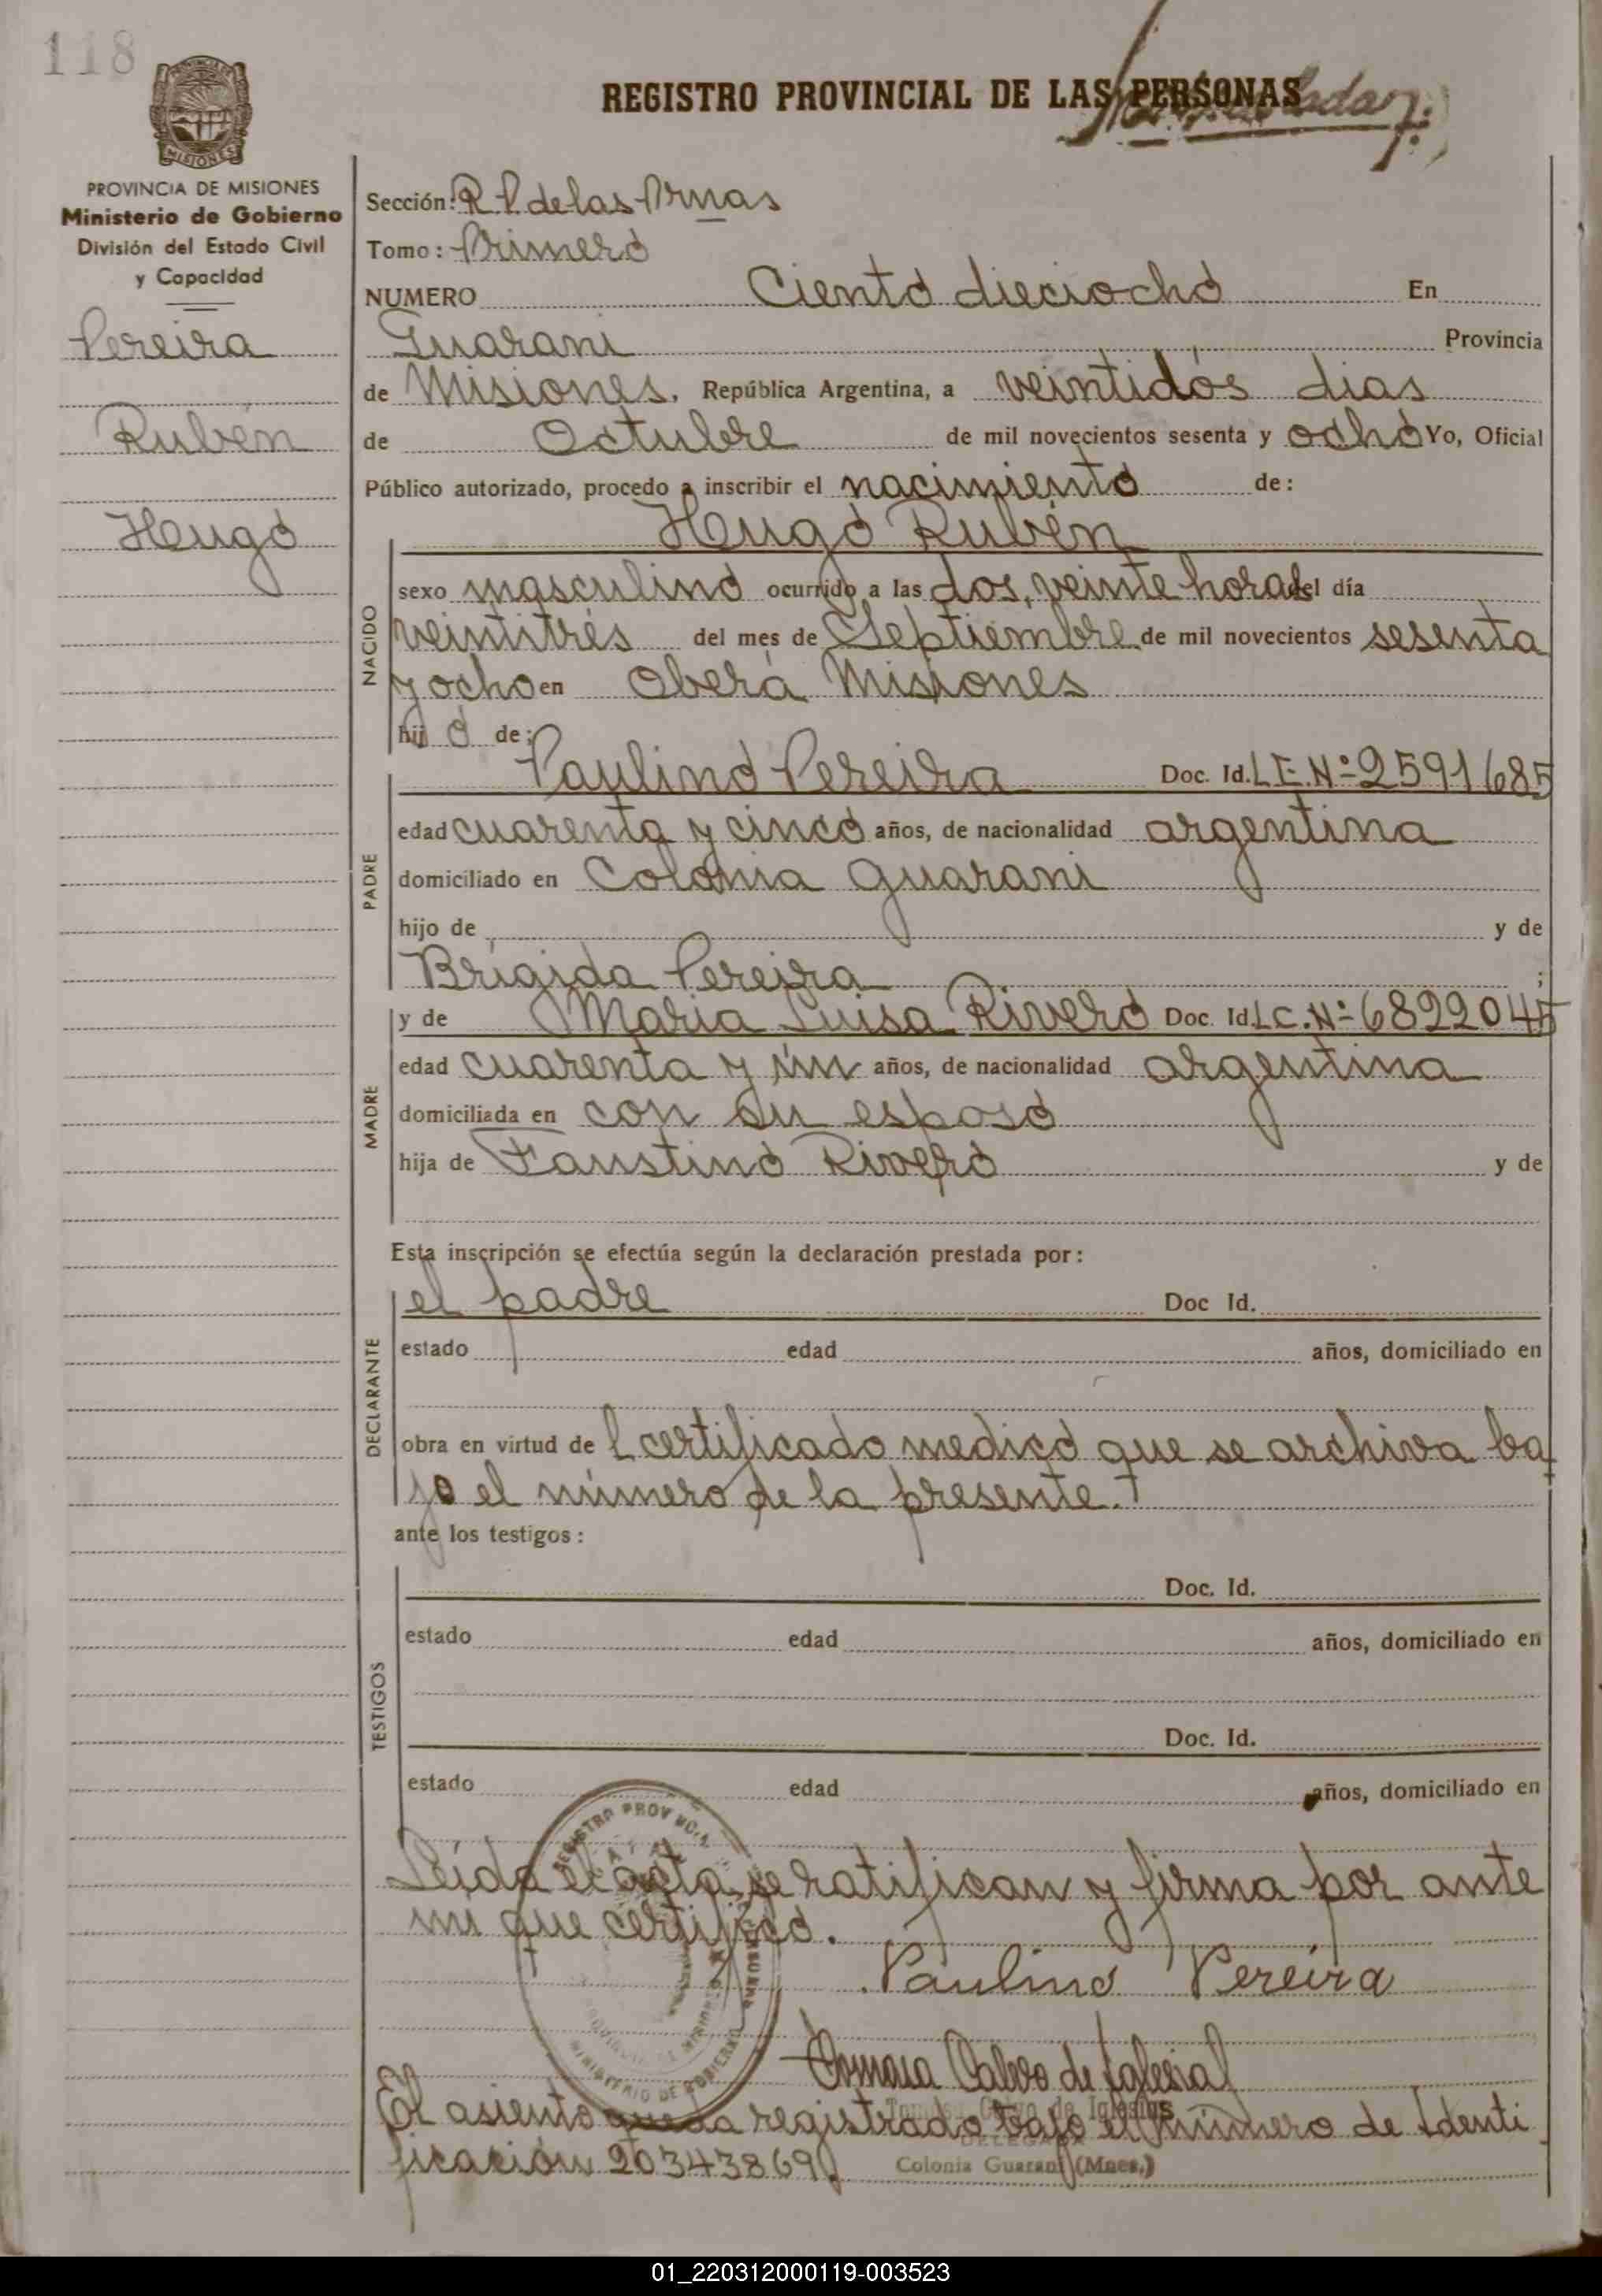 118
REGISTRO PROVINCIAL DE LAS PERSONAS
MISIONES
PROVINCIA DE MISIONES
Ministerio de Gobierno
División del Estado Civil
y Capacidad
Pereira
Rubén
Hugo
Sección: R P. de las Prnas
Tomo: Primero
NUMERO Ciento dieciocho En
Guarani Provincia
de Misiones. República Argentina, a veintidós dias
de Octubre de mil novecientos sesenta y ocho Yo, Oficial
Público autorizado, procedo a inscribir el nacimiento de:
Hugo Rubén
NACIDO
sexo masculino ocurrido a las dos, veinte horas del día
veintitrés del mes de Septiembre de mil novecientos sesenta
y ocho en Oberá Misiones
hijo de:
PADRE
Paulino Pereira Doc. Id. L.E. Nº 2591685
edad cuarenta y cinco años, de nacionalidad argentina
domiciliado en Colonia Guarani
hijo de y de
Brígida Pereira ;
MADRE
y de Maria Luisa Rivero Doc. Id. L.C. Nº 6822045
edad cuarenta y un años, de nacionalidad argentina
domiciliada en con su esposo
hija de Faustino Rivero y de
Esta inscripción se efectúa según la declaración prestada por:
DECLARANTE
el padre Doc Id.
estado edad años, domiciliado en
obra en virtud de l certificado medico que se archiva ba
jo el número de la presente.
ante los testigos:
TESTIGOS
Doc. Id.
estado edad años, domiciliado en
Doc. Id.
estado edad años, domiciliado en
Leida el acta, se ratifican y firma por ante
mi que certifico.
Paulino Pereira
Calvo de Iglesias
El asiento queda registrado bajo el número de Identi
ficación 20343869.
Calvo de Iglesias
DELEGADA
Colonia Guarani (Mnes.)
MINISTERIO DE GOBIERNO
01_220312000119-003523